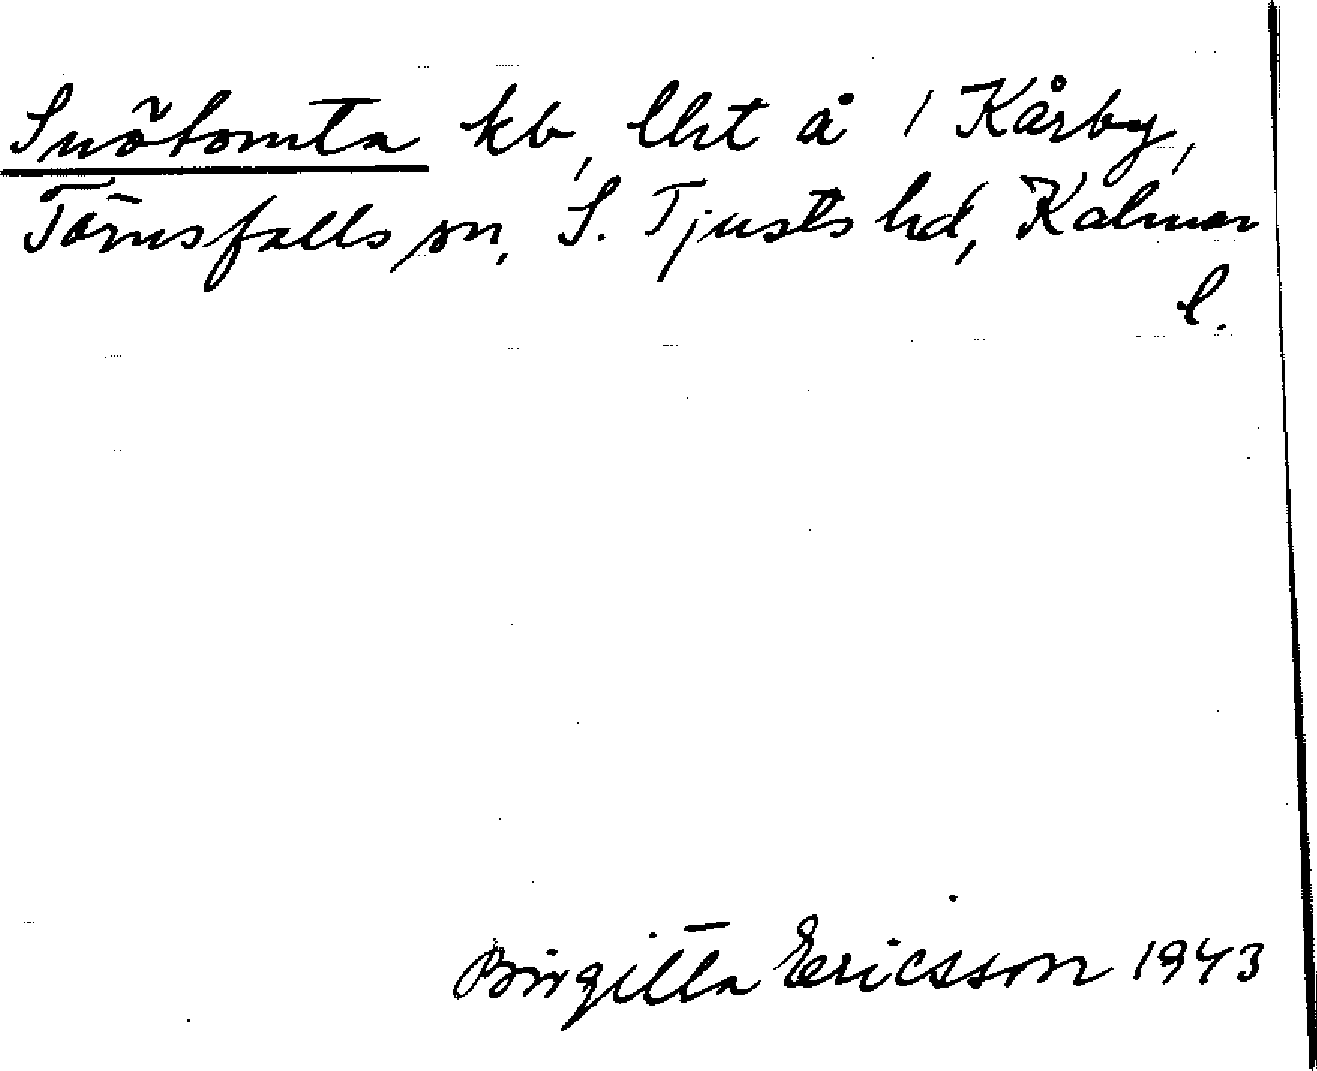 Snötomta kb, lht å 1 Kårby,
Törnsfalls sn, S. Tjusts hd, Kalmar
l.
Birgitta Ericsson 1943